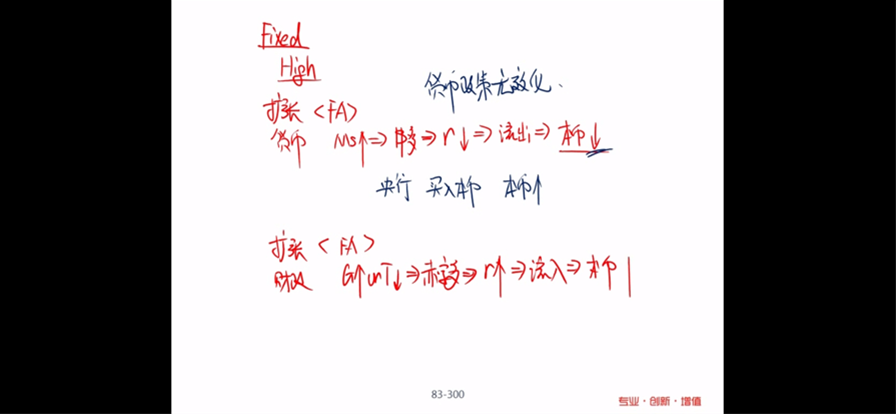 Fixed
High
货币政策无效化.
扩张 <FA>
货币 Ms↑ ⇒ ⇒ r↓ ⇒ 流出 ⇒ 本币↓
央行 买入本币 本币↑
扩张 <FA>
财政 G↑ or T↓ ⇒ 赤字 ⇒ r↑ ⇒ 流入 ⇒ 本币 |
83-300
专业·创新·增值